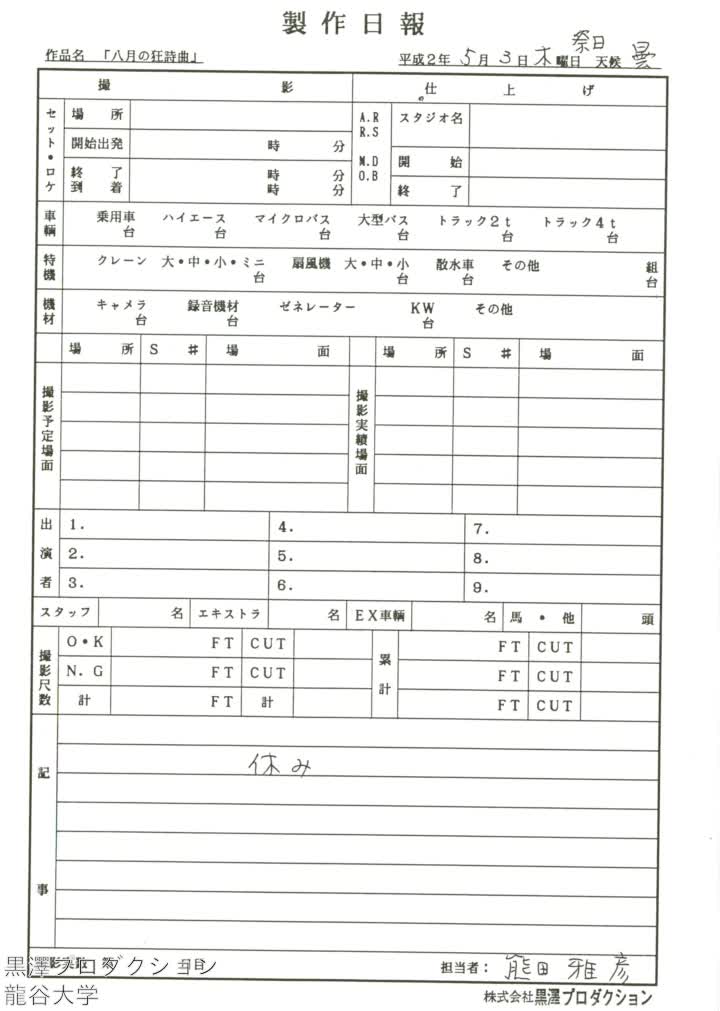 製作日報
作品名 「八月の狂詩曲」 平成2年 5月 3日 木曜日 祭日 天候 曇
撮影 仕上げ
セット・ロケ 場所 A.R R.S スタジオ名
開始出発 時 分 M.D O.B 開始
終了 時 分 終了
到着 時 分
車輌 乗用車 台 ハイエース 台 マイクロバス 台 大型バス 台 トラック2t 台 トラック4t 台
特機 クレーン 大・中・小・ミニ 台 扇風機 大・中・小 台 散水車 台 その他 組 台
機材 キャメラ 台 録音機材 台 ゼネレーター KW 台 その他
場所 S # 場面 場所 S # 場面
撮影予定場面 撮影実績場面
出演者
1. 4. 7.
2. 5. 8.
3. 6. 9.
スタッフ 名 エキストラ 名 EX車輌 名 馬・他 頭
撮影尺数 O・K FT CUT 累計 FT CUT
N.G FT CUT FT CUT
計 FT 計 FT CUT
記事
休み
担当者: 熊田雅彦
株式会社黒澤プロダクション
黒澤プロダクション
龍谷大学